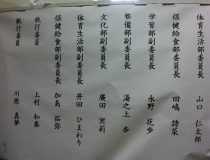 体育生活部副委員長　山口　仁太郎
保健給食部副委員長　田嶋　詩菜
学習部副委員長　永野　花歩
整備部副委員長　湯之上　杏
文化部副委員長　廣田　実莉
体育生活部副委員長　井田　ひまわり
保健給食部副委員長　加島　拓弥
執行委員　上村　和奏
執行委員　川原　真夢